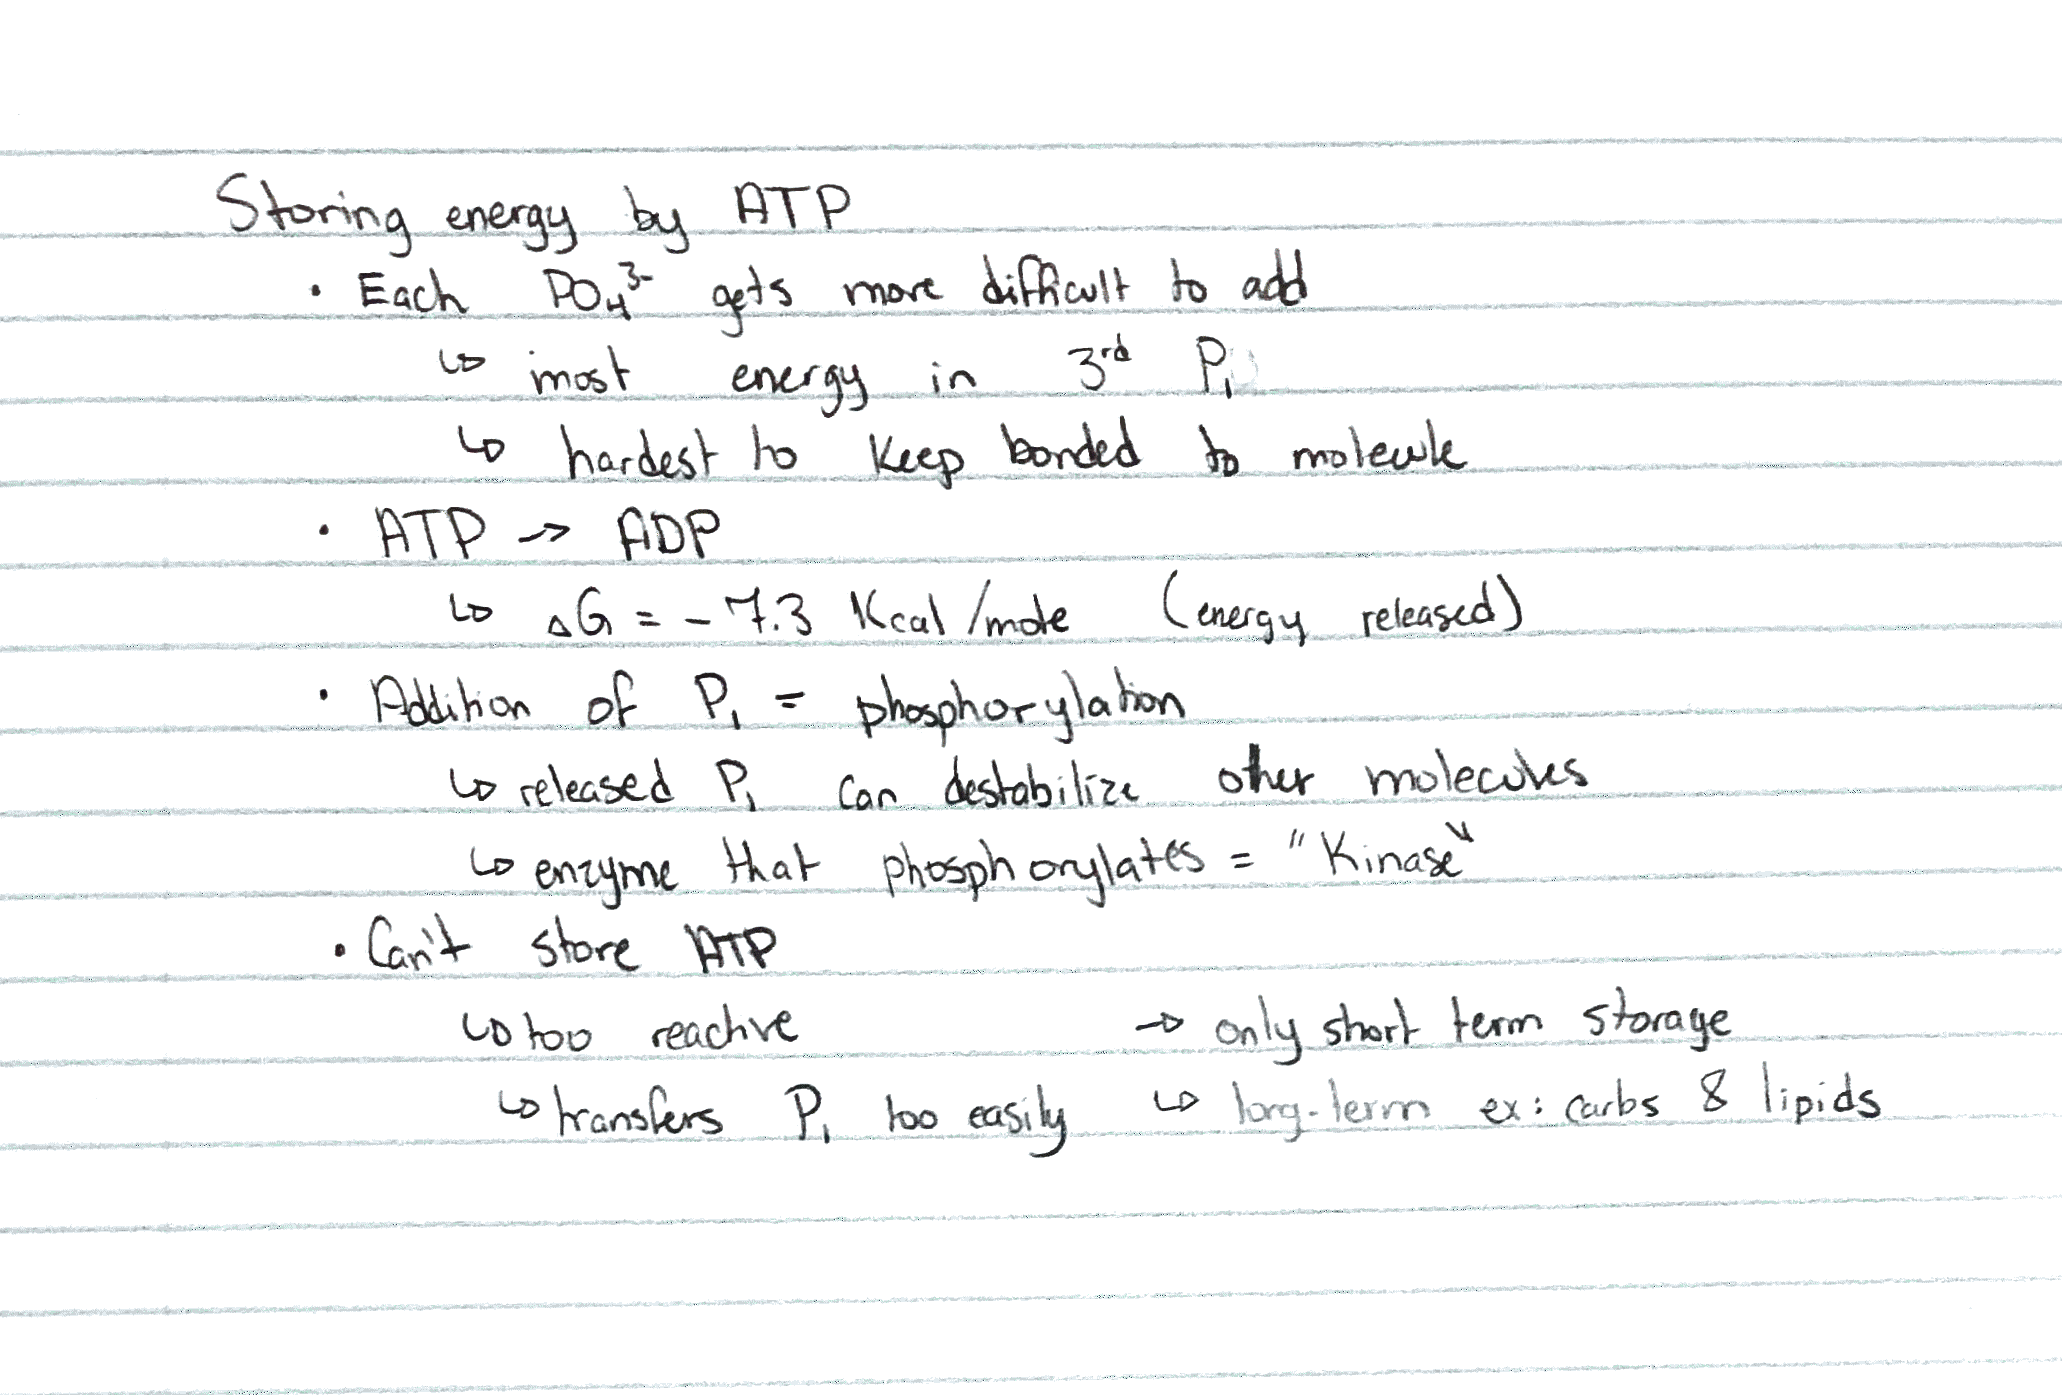 Storing energy by ATP
• Each PO₄³⁻ gets more difficult to add
↳ most energy in 3rd Pᵢ
↳ hardest to keep bonded to molecule
• ATP → ADP
↳ ΔG = -7.3 Kcal/mole (energy released)
• Addition of Pᵢ = phosphorylation
↳ released Pᵢ can destabilize other molecules
↳ enzyme that phosphorylates = "Kinase"
• Can't store ATP
↳ too reactive → only short term storage
↳ transfers Pᵢ too easily ↳ long-term ex: carbs & lipids